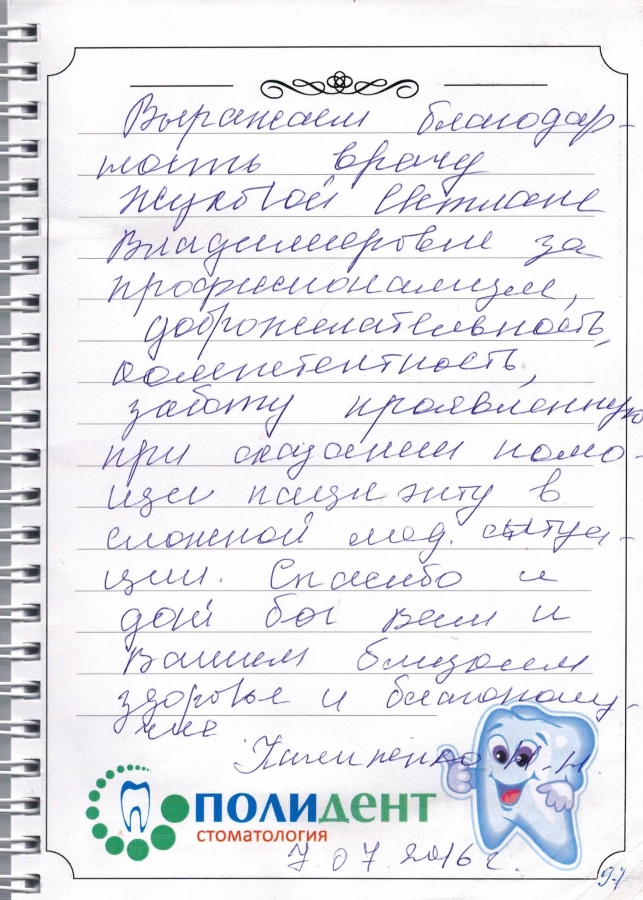 Выражаем благодар-
ность врачу
Жуковой Светлане
Владимировне за
профессионализм,
доброжелательность,
компетентность,
заботу проявленную
при оказании помо-
щи пациенту в
сложной мед. ситуа-
ции. Спасибо и
дай бог вам и
вашим близким
здоровье и благополу-
чие
Н.Н.
ПОЛИДЕНТ
СТОМАТОЛОГИЯ
7 07 2016 г.
97